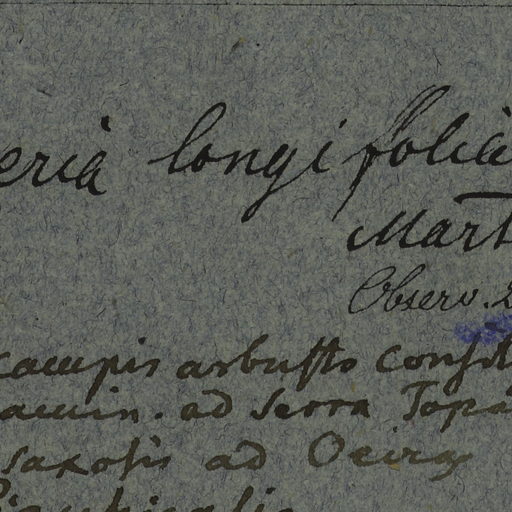 eria longifolia
Mart
Observ. 2
campis arbusto consit
amin. ad serra Topa
saxosis ad Oeiras